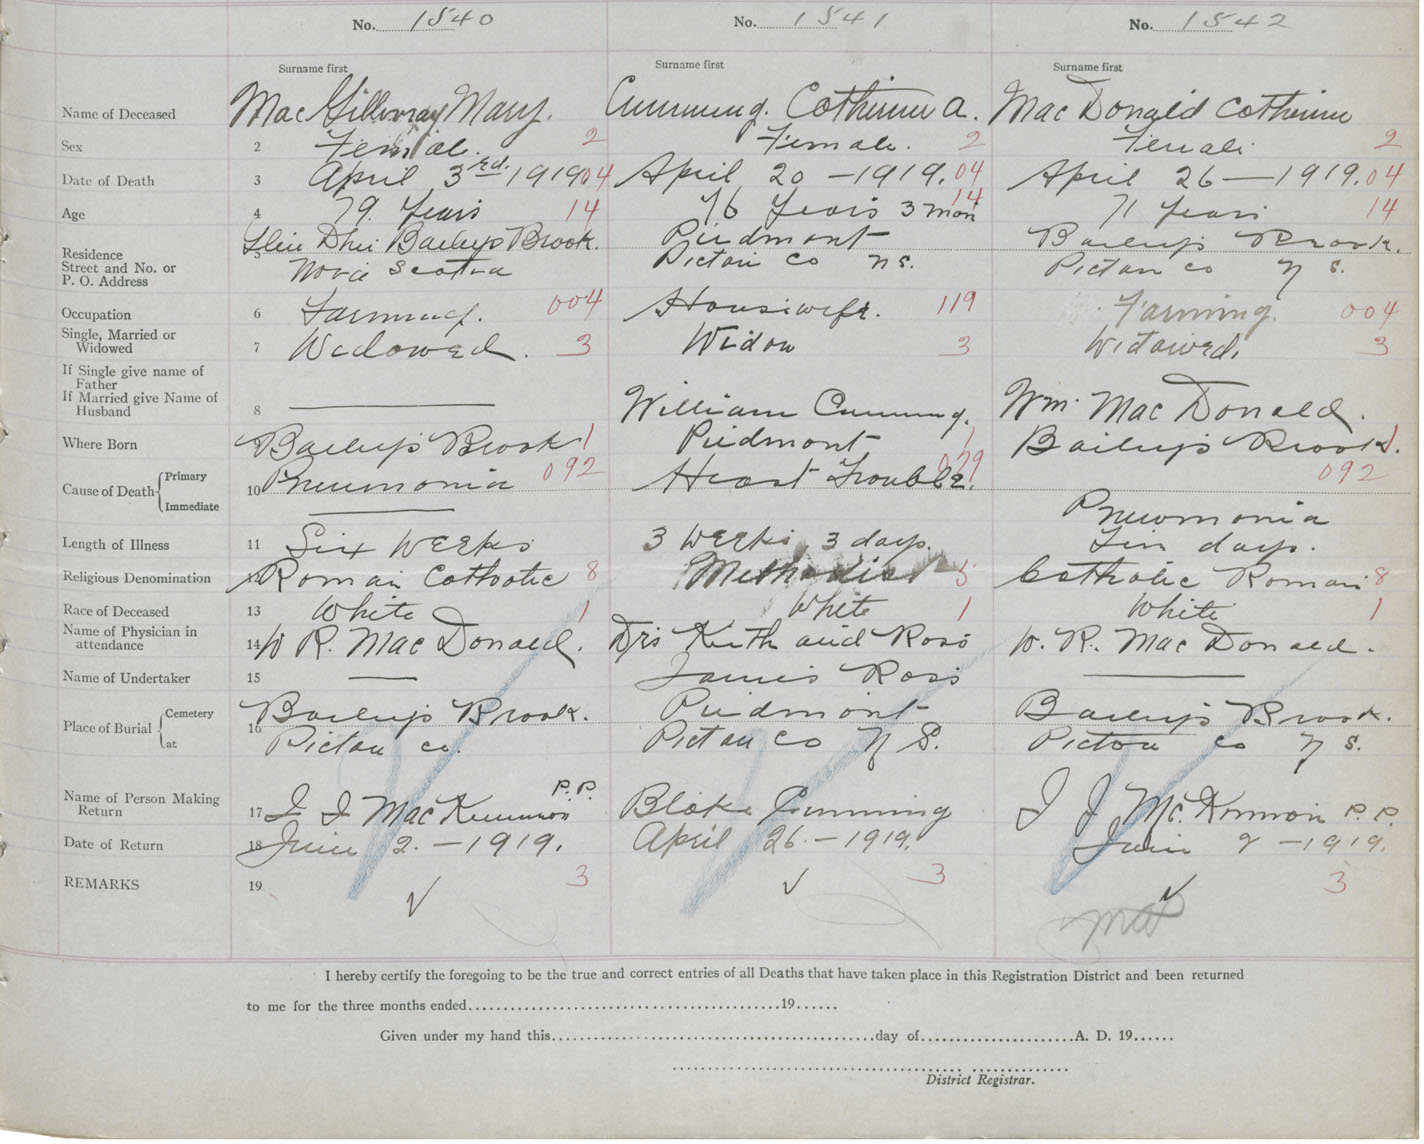 No. 1540 No. 1541 No. 1542
Surname first Surname first Surname first
Name of Deceased MacGillivray Mary. Cumming. Catherine A. MacDonald Catherine
Sex 2 Female. 2 Female. 2 Female 2
Date of Death 3 April 3rd. 1919 04 April 20 - 1919. 04 April 26 - 1919. 04
Age 4 79 Years 14 76 Years 3 mon 14 71 Years 14
Residence Bailey's Brook. Piedmont Bailey's Brook.
Street and No. or 5 Nova Scotia Pictou Co N S. Pictou Co N S.
P. O. Address
Occupation 6 Farming. 004 Housewife. 119 Farming. 004
Single, Married or
Widowed 7 Widowed. 3 Widow 3 Widowed. 3
If Single give name of
Father
If Married give Name of
Husband 8 William Cumming. Wm. MacDonald.
Where Born 9 Bailey's Brook 1 Piedmont 1 Bailey's Brook. 1
Cause of Death Primary 10 Pneumonia 092 Heart Trouble. 079 092
Immediate Pneumonia
Length of Illness 11 Six Weeks 3 Weeks, 3 days. Ten days.
Religious Denomination 12 Roman Catholic 8 Methodist 5 Catholic Roman 8
Race of Deceased 13 White 1 White 1 White 1
Name of Physician in
attendance 14 W R. MacDonald. Drs Keith and Ross W. R. MacDonald.
Name of Undertaker 15 James Ross
Place of Burial Cemetery 16 Bailey's Brook. Piedmont Bailey's Brook.
at Pictou Co. Pictou Co N S. Pictou Co N S.
Name of Person Making
Return 17 J J MacKinnon P.P. Blake Cumming J J McKinnon P.P.
Date of Return 18 June 2. - 1919. April 26. - 1919. June 2 - 1919.
REMARKS 19 3 3 3
I hereby certify the foregoing to be the true and correct entries of all Deaths that have taken place in this Registration District and been returned
to me for the three months ended 19
Given under my hand this day of A. D. 19
District Registrar.